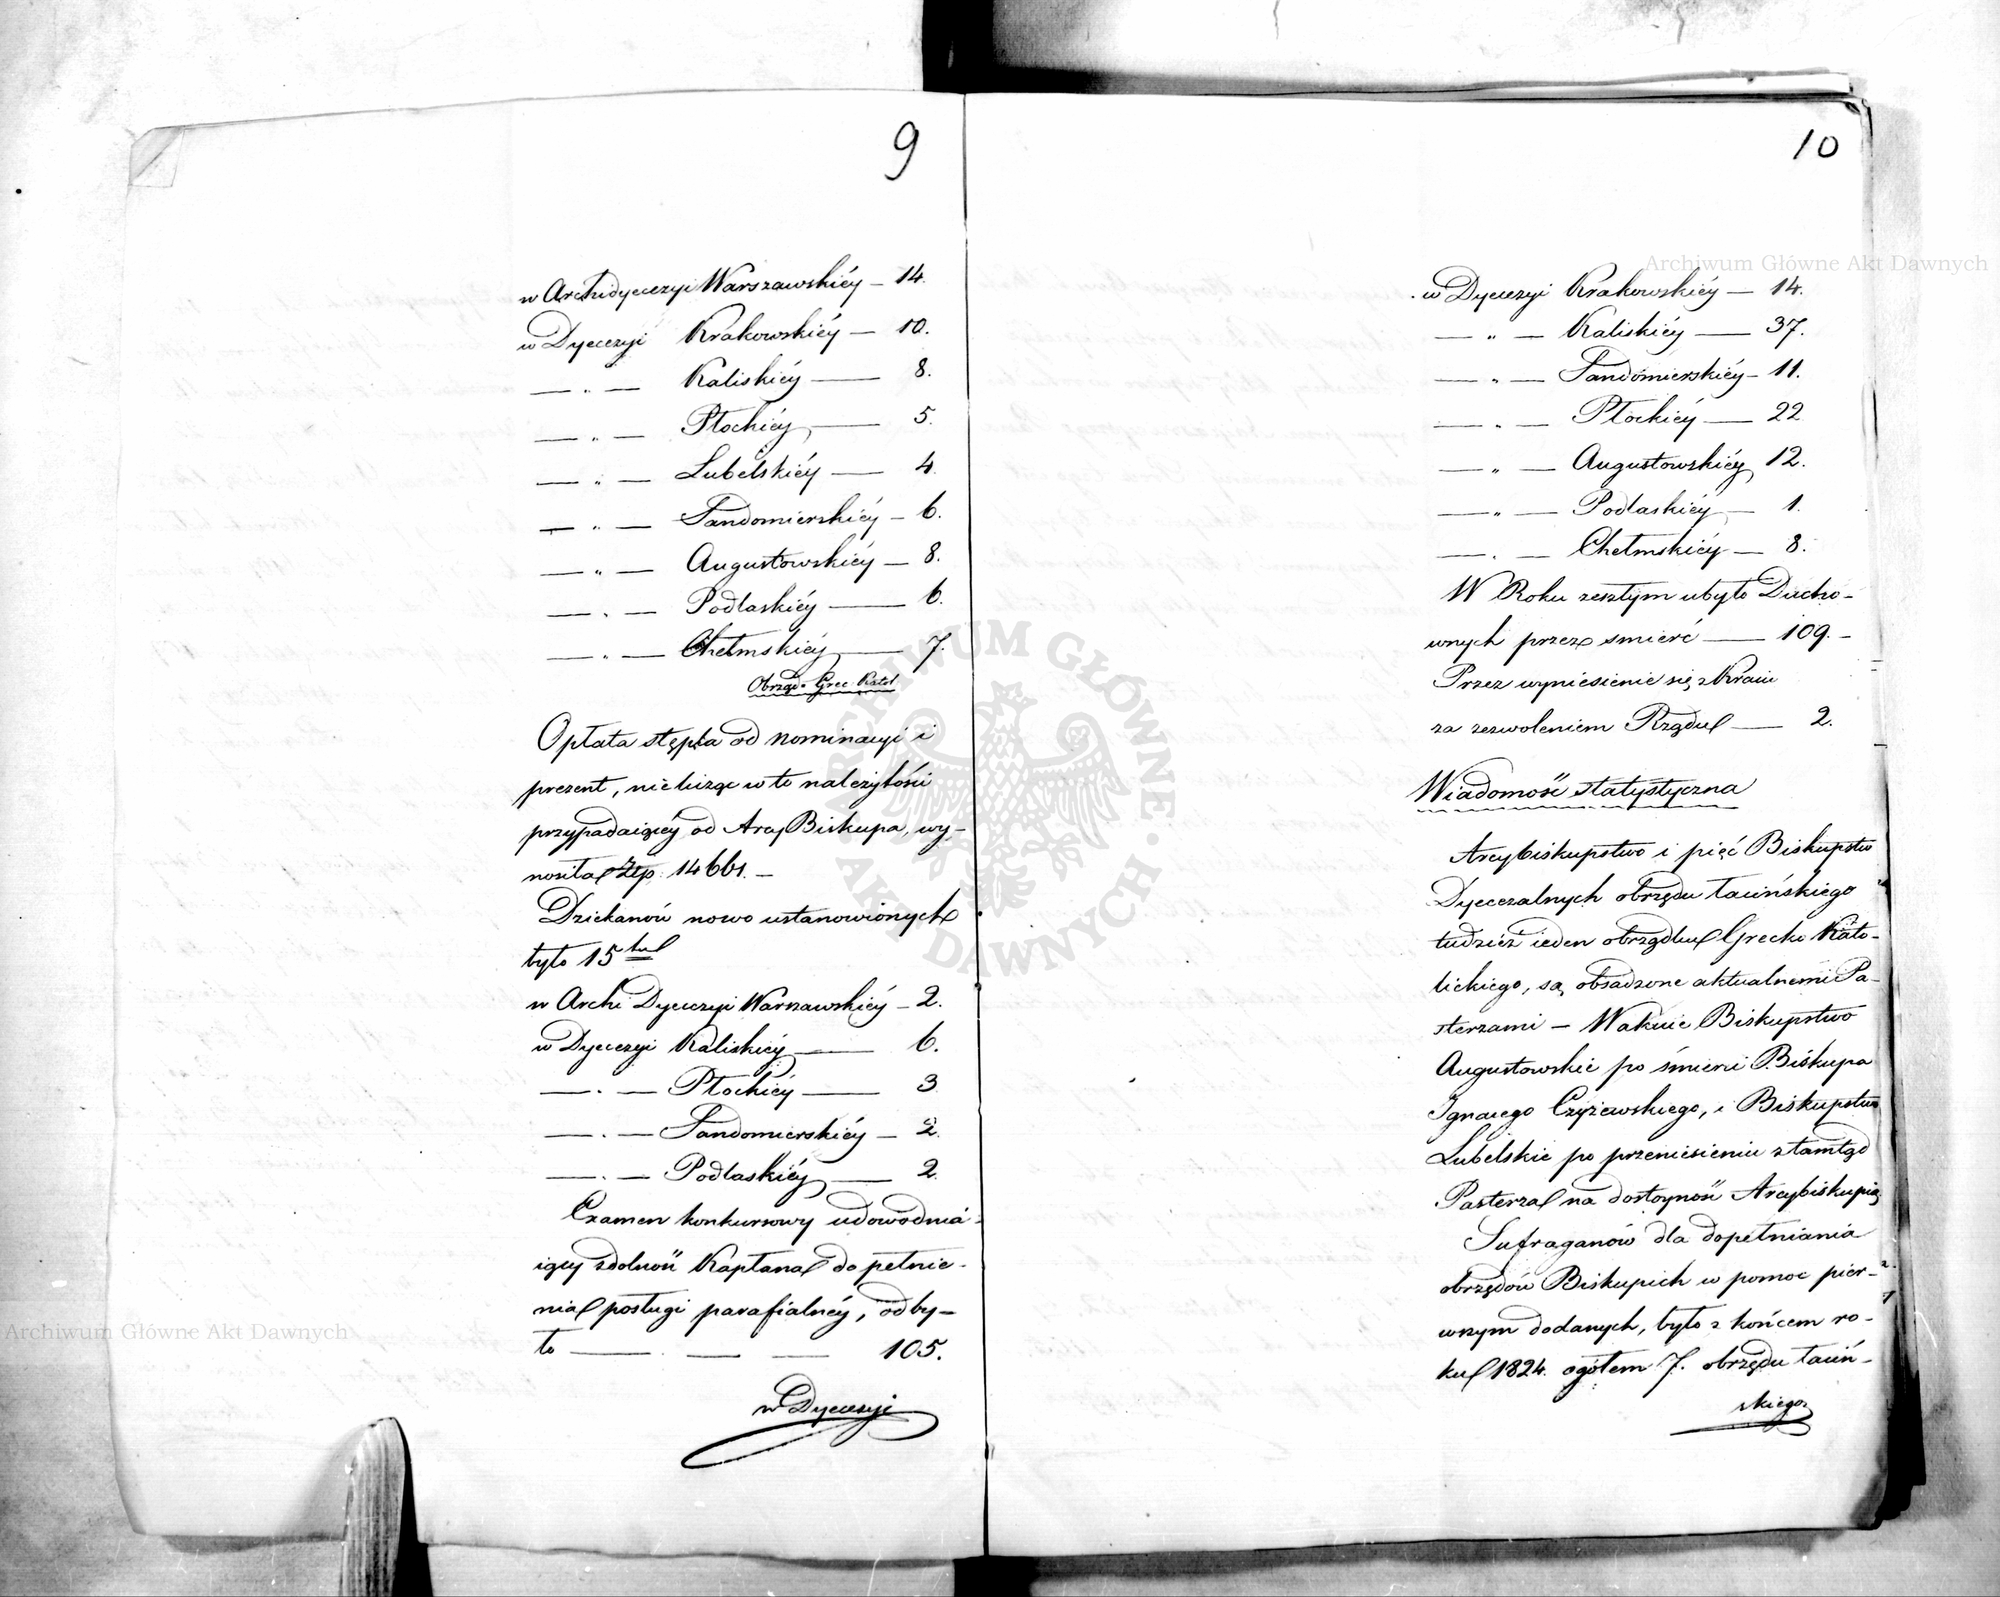 9
w Archidyecezyi Warszawskiéy — 14.
w Dyecezyi Krakowskiéy — 10.
— „ — Kaliskiéy — 8.
— „ — Płockiéy — 5.
— „ — Lubelskiéy — 4.
— „ — Sandomierskiéy — 6.
— „ — Augustowskiéy — 8.
— „ — Podlaskiéy — 6.
— „ — Chełmskiéy — 7.
Obrząd. Grec. Katol
Opłata stępla od nominacyi i
prezent, nie licząc w to należytości
przypadaiącéy od Arcy Biskupa, wy-
nosiła Złp. 14661. —
Dziekanów nowo ustanowionych
było 15tu
w Archi Dyecezyi Warszawskiéy — 2.
w Dyecezyi Kaliskiéy — 6.
— „ — Płockiéy — 3
— „ — Sandomierskiéy — 2.
— „ — Podlaskiéy — 2.
Examen konkursowy udowodnia-
iący zdolność Kapłana do pełnie-
nia posługi parafialnéy, odby-
ło — — — 105.
w Dyecezyi
10
w Dyecezyi Krakowskiéy — 14.
— „ — Kaliskiéy — 37.
— „ — Sandomierskiéy — 11.
— „ — Płockiéy — 22
— „ — Augustowskiéy 12.
— „ — Podlaskiéy — 1.
— „ — Chełmskiéy — 8.
W Roku zeszłym ubyło Ducho-
wnych przez smierć — 109. —
Przez wyniesienie się z Kraiu
za zezwoleniem Rządu — 2.
Wiadomość statystyczna
Arcybiskupstwo i pięć Biskupstw
Dyecezalnych obrzędu łacińskiego
tudzież ieden obrządku Grecko Kato-
lickiego, są obsadzone aktualnemi Pa-
sterzami — Wakuie Biskupstwo
Augustowskie po śmierci Biskupa
Ignacego Czyżewskiego, i Biskupstwo
Lubelskie po przeniesieniu ztamtąd
Pasterza na dostoyność Arcybiskupią
Sufraganów dla dopełniania
obrzędów Biskupich w pomoc pier-
wszym dodanych, było z końcem ro-
ku 1824. ogółem 7. obrzędu łaciń-
skiego
Archiwum Główne Akt Dawnych
Archiwum Główne Akt Dawnych
ARCHIWUM GŁÓWNE AKT DAWNYCH